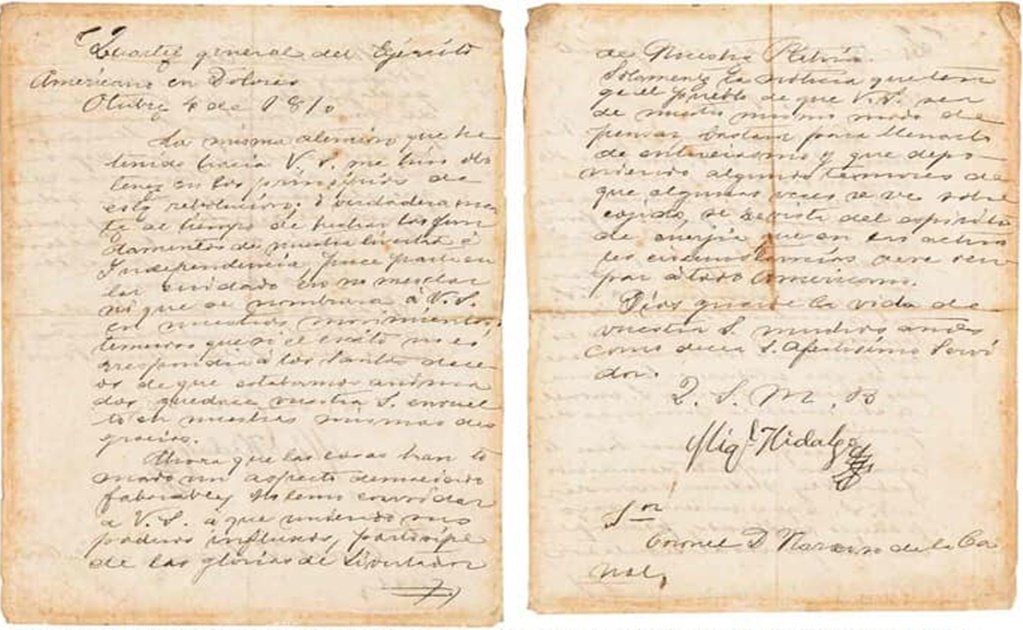 Cuartel general del Ejército
Americano en Dolores
Otubre 4 de 1810
La misma atención que he
tenido hacia V. S. me hizo obs
tener en los principios de
esta rebolución: o verdaderamen
te al tiempo de hechar los fun
damentos de nuestra livertad e
Independencia, puce particu
lar cuidado en no mesclar
ni que se nombrara a V. S.
en nuestros movimientos,
temeroso que si el exito no co
rrespondia a los santos dece
os de que estabamos anima
dos quedace vuestra S. envuel
to en nuestras mismas des
gracias.
Ahora que las cosas han to
mado un aspecto demaciado
faborable, no temo convidar
a V. S. a que uniendo sus
poderosos influxos, participe
de las glorias de Livertador
de Nuestra Patria.
Solamente la noticia que ten
ga el pueblo de que V. S. sea
de nuestro mismo modo de
pensar bastara para llenarlo
de entuciasmo y que depo
niendo algunos temores de
que algunas veces se ve sobre
cogido, se revista del espiritu
de energia que en las actua
les circunstancias deve ocu
par a todo Americano.
Dios guarde la vida de
vuestra S. muchos años
como decea S. afectisimo servi
dor.
Q. S. M. B
Migl. Hidalgo
Sor
Coronel D Narciso de la Ca
nal,